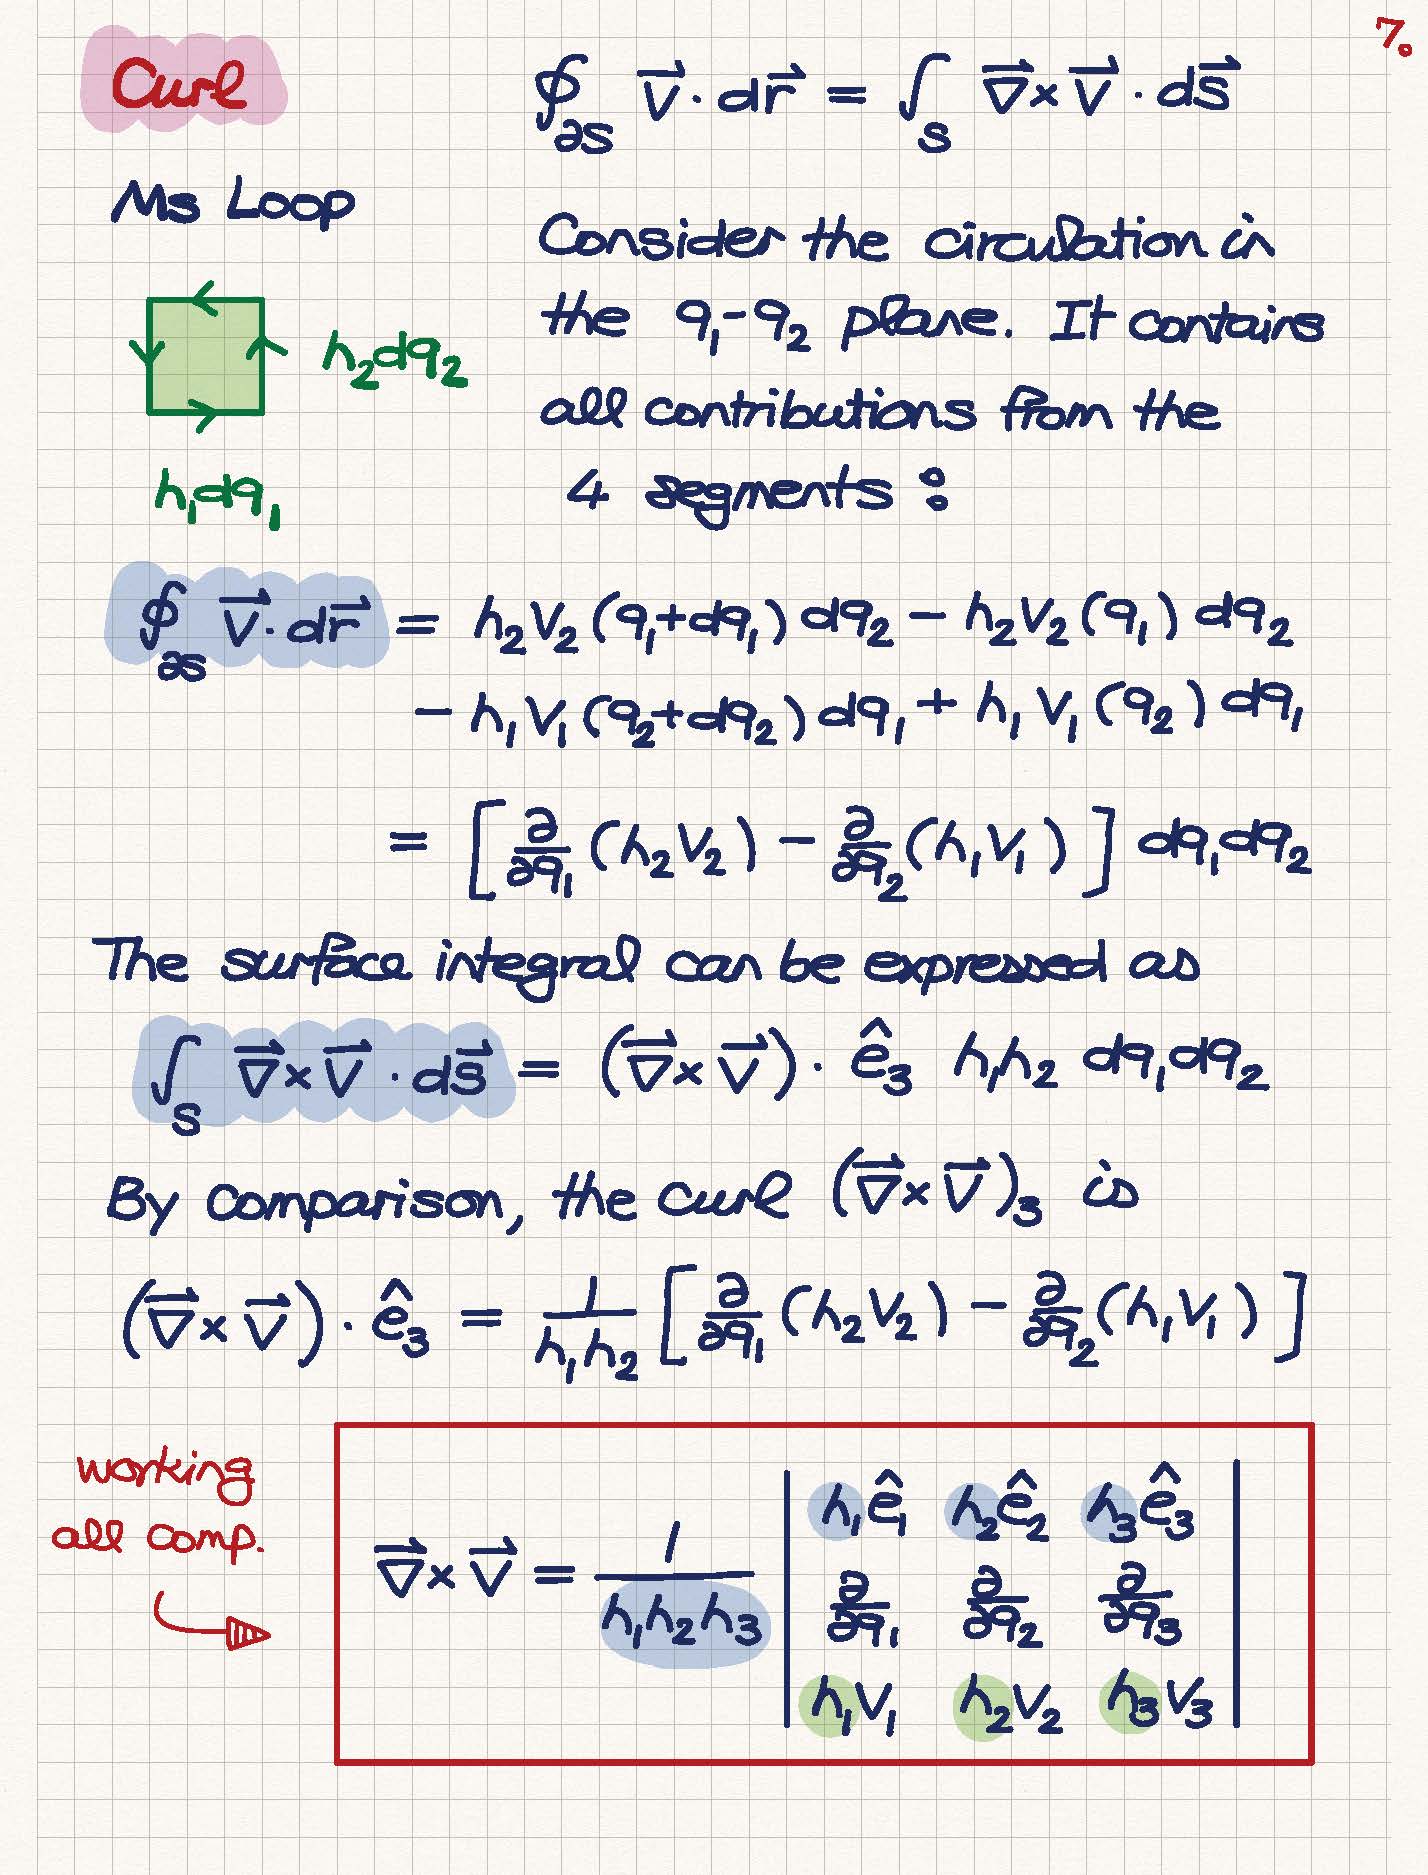 7.
Curl
∮∂S V⃗ · dr⃗ = ∫S ∇⃗ × V⃗ · ds⃗
Ms Loop
Consider the circulation in
the q₁-q₂ plane. It contains
all contributions from the
4 segments :
h₂dq₂
h₁dq₁
∮∂S V⃗ · dr⃗ = h₂V₂(q₁+dq₁) dq₂ − h₂V₂(q₁) dq₂
− h₁V₁(q₂+dq₂) dq₁ + h₁V₁(q₂) dq₁
= [ ∂/∂q₁ (h₂V₂) − ∂/∂q₂ (h₁V₁) ] dq₁dq₂
The surface integral can be expressed as
∫S ∇⃗ × V⃗ · ds⃗ = (∇⃗ × V⃗) · ê₃ h₁h₂ dq₁dq₂
By comparison, the curl (∇⃗ × V⃗)₃ is
(∇⃗ × V⃗) · ê₃ = 1/h₁h₂ [ ∂/∂q₁ (h₂V₂) − ∂/∂q₂ (h₁V₁) ]
working
all comp.
∇⃗ × V⃗ = 1/h₁h₂h₃ | h₁ê₁ h₂ê₂ h₃ê₃ |
| ∂/∂q₁ ∂/∂q₂ ∂/∂q₃ |
| h₁V₁ h₂V₂ h₃V₃ |